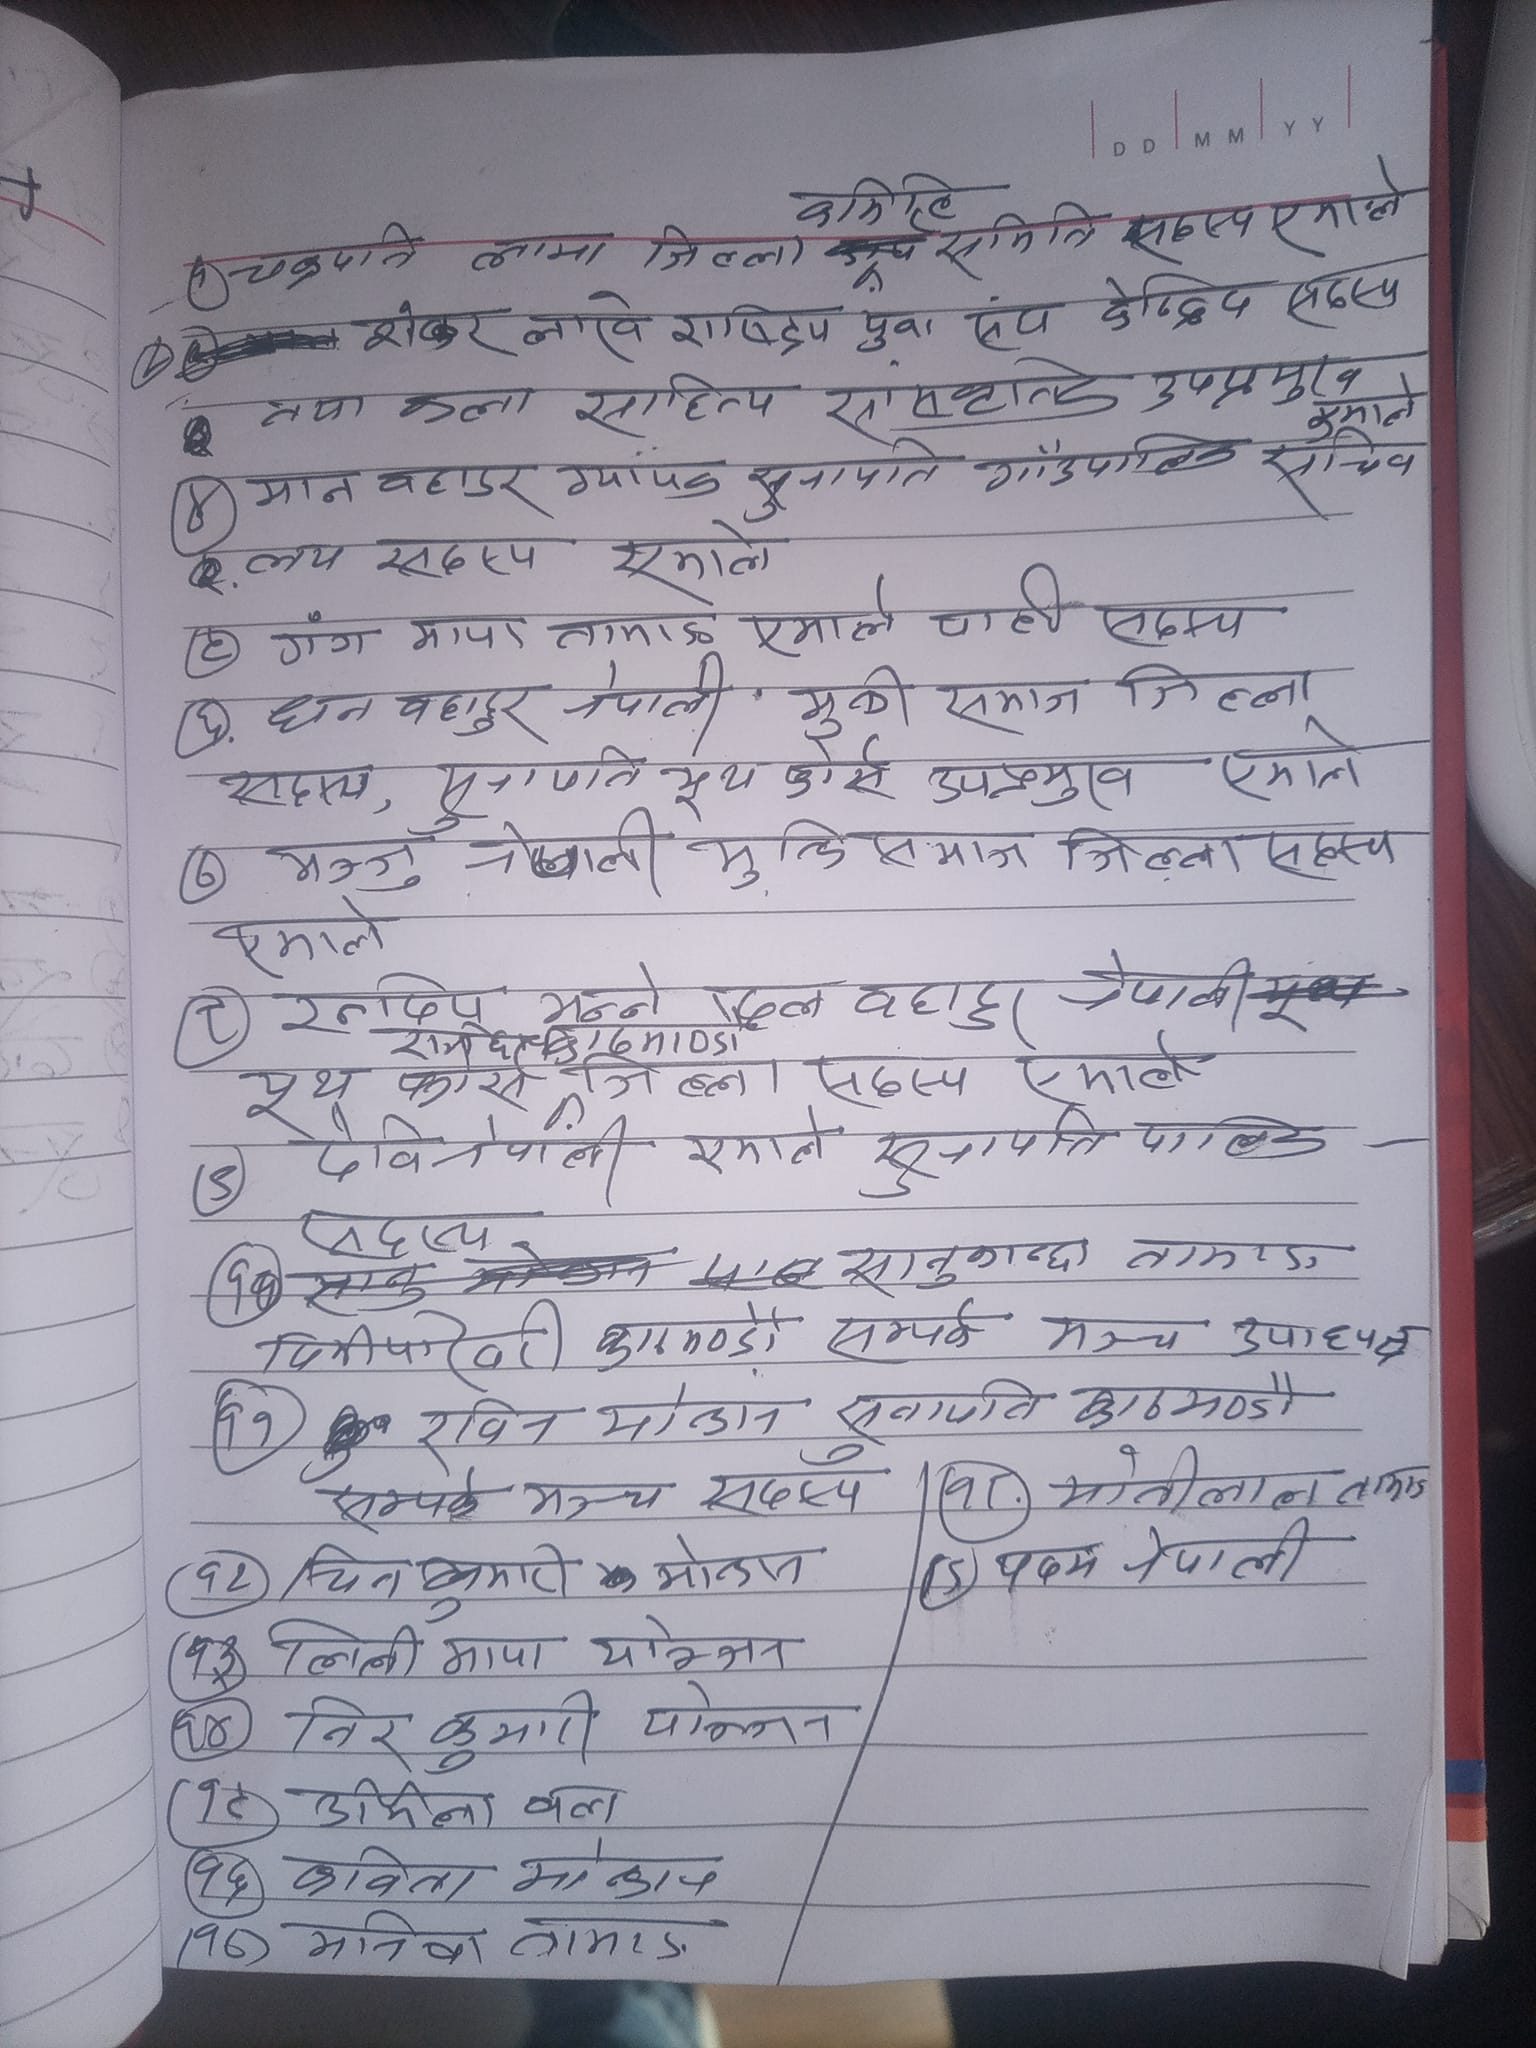 DD MM YY
कमिटि
१ चक्रपति लामा जिल्ला समिति सदस्य एमाले
शंकर लावे राष्ट्रिय युवा संघ केन्द्रिय सदस्य
तथा कला साहित्य उपप्रमुख
एमाले
४ मान बहादुर सुनापति गाँउपालिका सचिव
सदस्य एमाले
गंगा माया तामाङ एमाले पार्टी सदस्य
६. धन बहादुर नेपाली मुक्ती समाज जिल्ला
सदस्य, सुनापति यूथ फोर्स उपप्रमुख एमाले
७ मञ्जु नेपाली मुक्ति समाज जिल्ला सदस्य
एमाले
८ रत्नदिप भन्ने दिल बहादुर नेपाली
रामेछाप काठमाण्डौ
यूथ फोर्स जिल्ला सदस्य एमाले
९ देवि नेपाली एमाले सुनापति पालिका -
सदस्य
१० सानुकान्छा तामाङ
काठमाण्डौ सम्पर्क मञ्च उपाध्यक्ष
११ रविन मोक्तान सुनापति काठमाण्डौ
सम्पर्क मञ्च सदस्य
१२ कुमारी मोक्तान
१३ लिली माया योञ्जन
१४ निर कुमारी योञ्जन
१५ उर्मिला
१६ कविता मोक्तान
१७ तामाङ
१८. मोतीलाल तामाङ
१९ पदम नेपाली